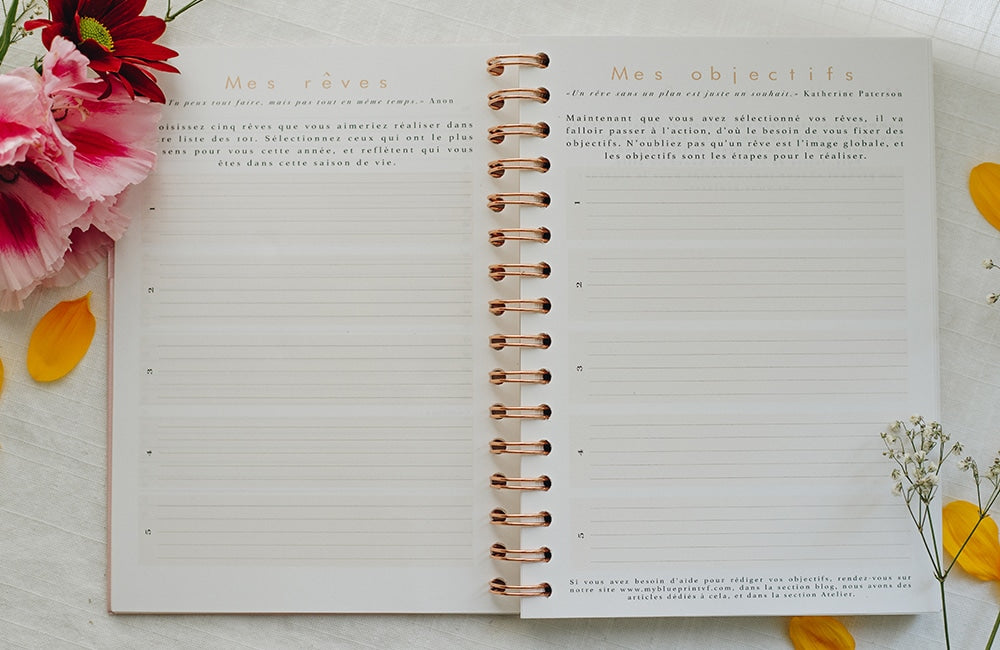 Mes rêves
Tu peux tout faire, mais pas tout en même temps.» Anon
oisissez cinq rêves que vous aimeriez réaliser dans
re liste des 101. Sélectionnez ceux qui ont le plus
sens pour vous cette année, et reflètent qui vous
êtes dans cette saison de vie.
1
2
3
4
5
Mes objectifs
«Un rêve sans un plan est juste un souhait.» Katherine Paterson
Maintenant que vous avez sélectionné vos rêves, il va
falloir passer à l'action, d'où le besoin de vous fixer des
objectifs. N'oubliez pas qu'un rêve est l'image globale, et
les objectifs sont les étapes pour le réaliser.
1
2
3
4
5
Si vous avez besoin d'aide pour rédiger vos objectifs, rendez-vous sur
notre site www.myblueprintvf.com, dans la section blog, nous avons des
articles dédiés à cela, et dans la section Atelier.